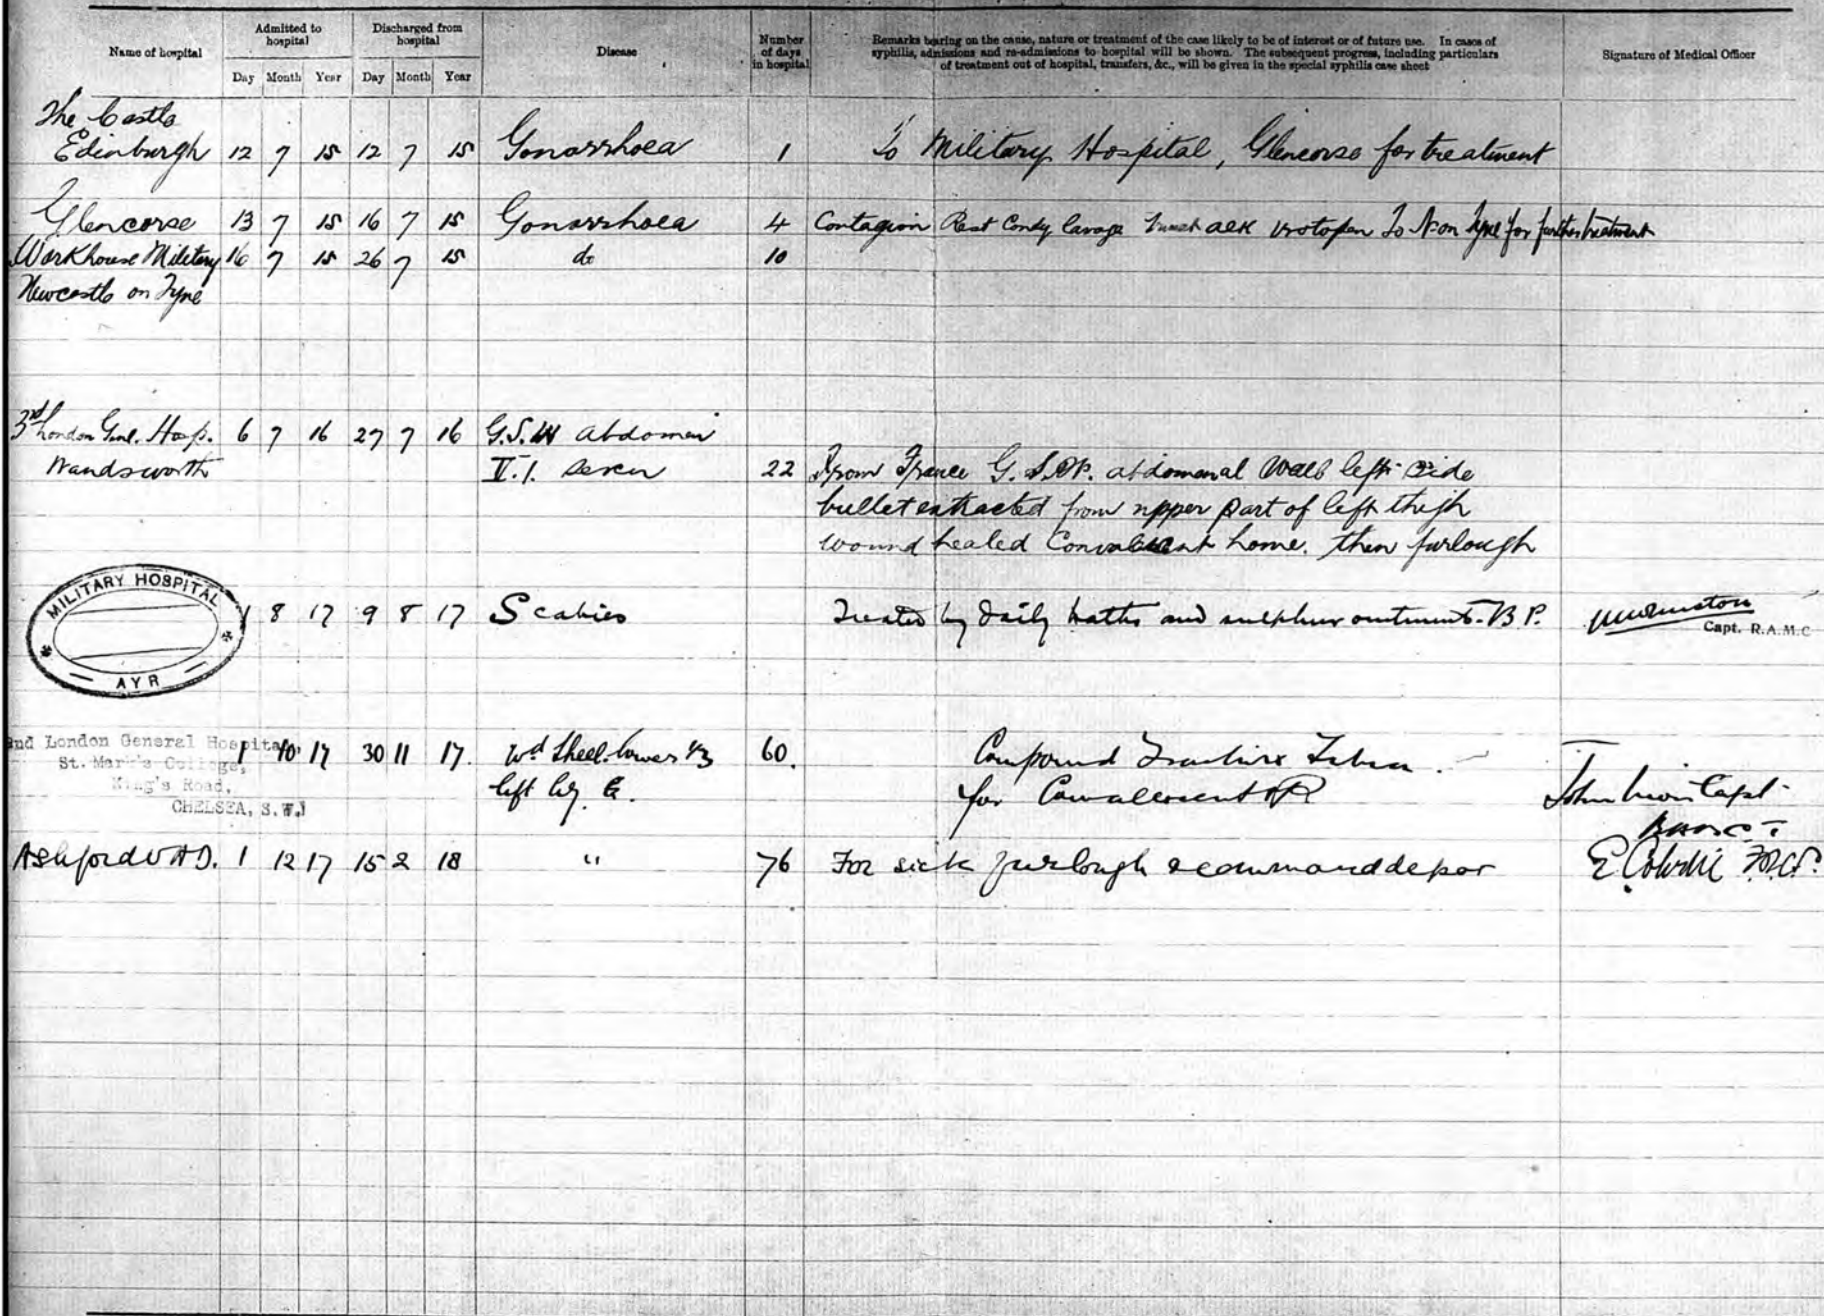 Name of hospital
Admitted to hospital
Discharged from hospital
Disease
Number of days in hospital
Remarks bearing on the cause, nature or treatment of the case likely to be of interest or of future use. In cases of
syphilis, admissions and re-admissions to hospital will be shown. The subsequent progress, including particulars
of treatment out of hospital, transfers, &c., will be given in the special syphilis case sheet
Signature of Medical Officer
Day Month Year Day Month Year
The Castle
Edinburgh 12 7 15 12 7 15 Gonorrhoea 1 To Military Hospital, Glencorse for treatment
Glencorse 13 7 15 16 7 15 Gonorrhoea 4 Contagion Rest Condy lavage To N. on Tyne for further treatment
Workhouse Military 16 7 15 26 7 15 do 10
Newcastle on Tyne
3rd London Genl. Hosp. 6 7 16 27 7 16 G.S.W abdomen
Wandsworth 22 From France G.S.W. abdomenal wall left side
bullet extracted from upper part of left thigh
wound healed Convalescent home. then furlough
MILITARY HOSPITAL
AYR
1 8 17 9 8 17 Scabies Treated by daily baths and sulphur ointment B.P.
Capt. R.A.M.C
2nd London General Hospital, 1 10 17 30 11 17. Wd Shell lower 1/3 60. Compound Fracture Tibia.
St. Mark's College, left leg. for Convalescent
King's Road,
CHELSEA, S.W.
John Capt.
Ashford VAD. 1 12 17 15 2 18 " 76 For sick furlough & command depot